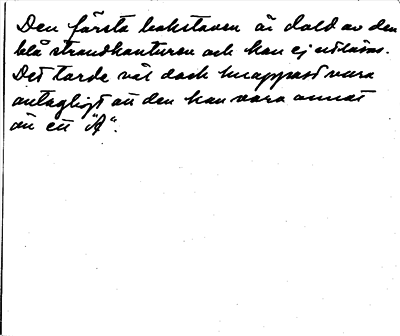 Den första bokstaven är dold av den
blå strandkonturen och kan ej utläsas.
Det torde väl dock knappast vara
antagligt att den kan vara annat
än ett "A".